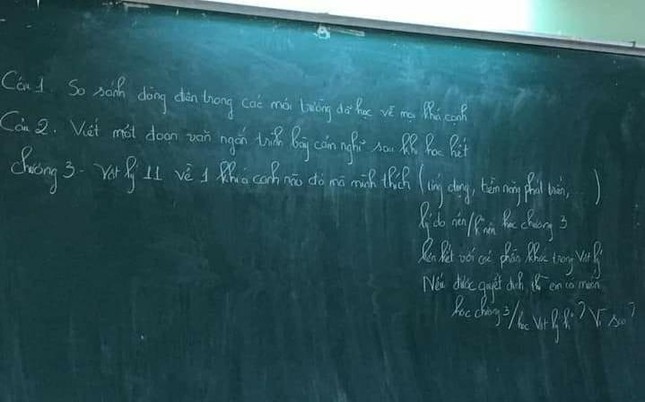 Câu 1. So sánh dòng điện trong các môi trường đã học về mọi khía cạnh
Câu 2. Viết một đoạn văn ngắn trình bày cảm nghĩ sau khi học hết
chương 3 - Vật lý 11 về 1 khía cạnh nào đó mà mình thích (ứng dụng, tiềm năng phát triển, ...)
lý do nên/k nên học chương 3
liên kết với các phần khác trong Vật lý
Nếu được quyết định thì em có muốn
học chương 3/học Vật lý k? Vì sao?